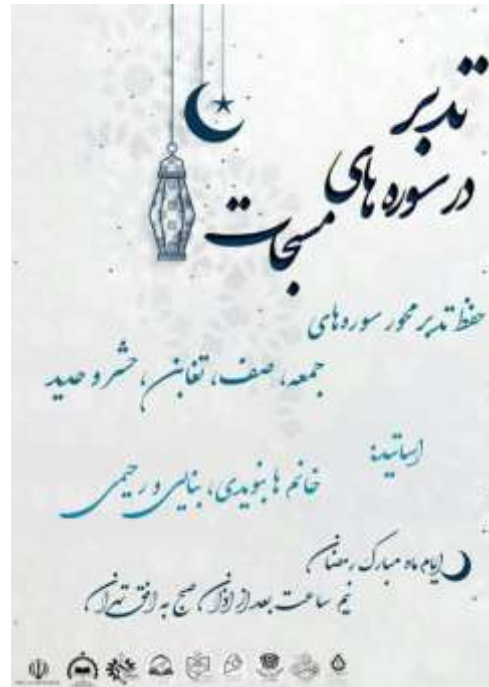 تدبر
در سوره های
مسبحات
حفظ تدبر محور سوره‌های
جمعه، صف، تغابن، حشر و حدید
اساتید:
خانم ها بنویدی، بنایی و رحیمی
ایام ماه مبارک رمضان
نیم ساعت بعد از اذان صبح به افق تهران